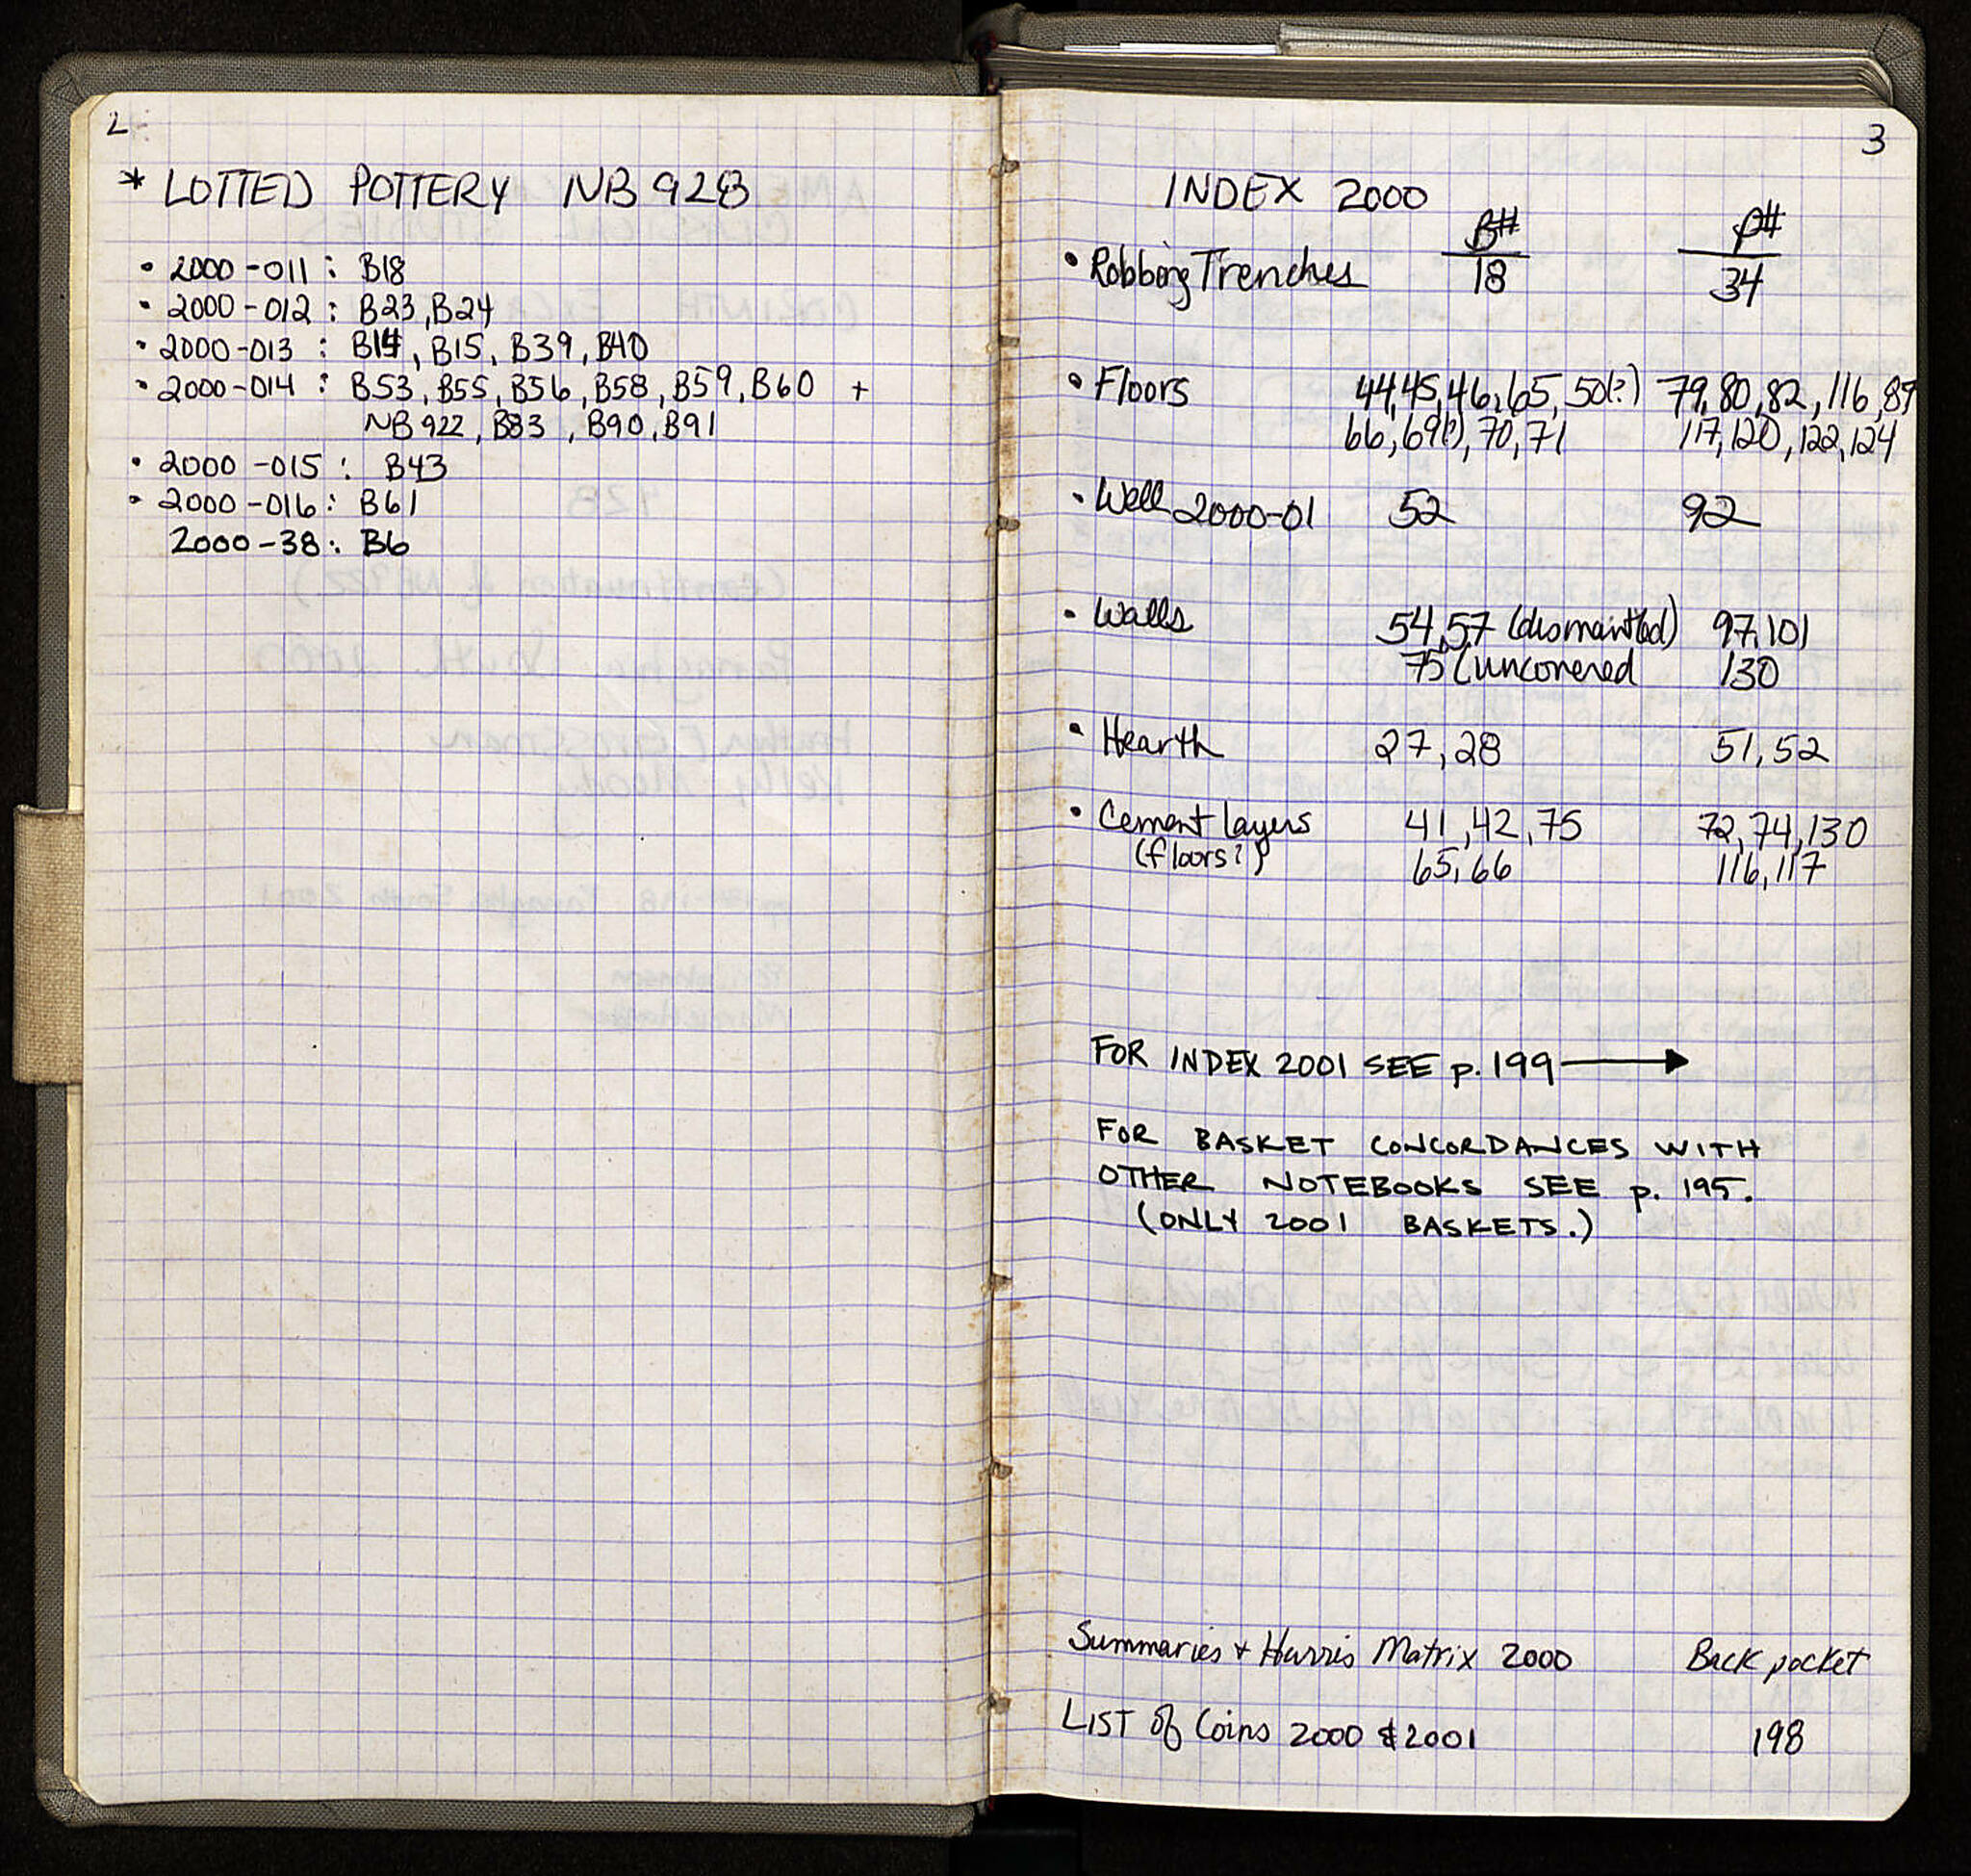 2
* LOTTED POTTERY NB 928
• 2000-011 : B18
• 2000-012 : B23, B24
• 2000-013 : B14, B15, B39, B40
• 2000-014 : B53, B55, B56, B58, B59, B60 +
NB 922, B83, B90, B91
• 2000-015 : B43
• 2000-016 : B61
2000-38 : B6
3
INDEX 2000
B# P#
• Robbing Trenches 18 34
• Floors 44,45,46,65,50(?) 79,80,82,116,89
66,69(?),70,71 117,120,122,124
• Well 2000-01 52 92
• Walls 54,57 (dismantled) 97,101
75 (uncovered 130
• Hearth 27,28 51,52
• Cement layers 41,42,75 72,74,130
(floors?) 65,66 116,117
FOR INDEX 2001 SEE p. 199 →
FOR BASKET CONCORDANCES WITH
OTHER NOTEBOOKS SEE p. 195.
(ONLY 2001 BASKETS.)
Summaries + Harris Matrix 2000 Back pocket
LIST of Coins 2000 & 2001 198